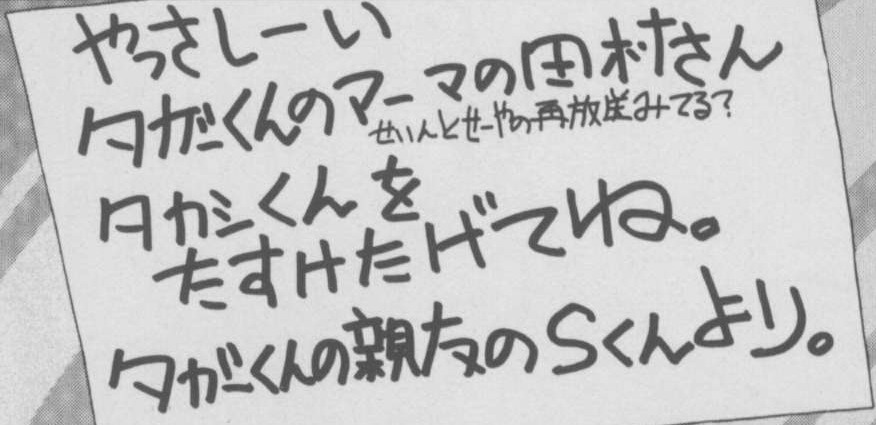 やっさしーい
タカシくんのマーマの田村さん
せいんとせーやの再放送みてる?
タカシくんを
たすけたげてね。
タカシくんの親友のSくんより。